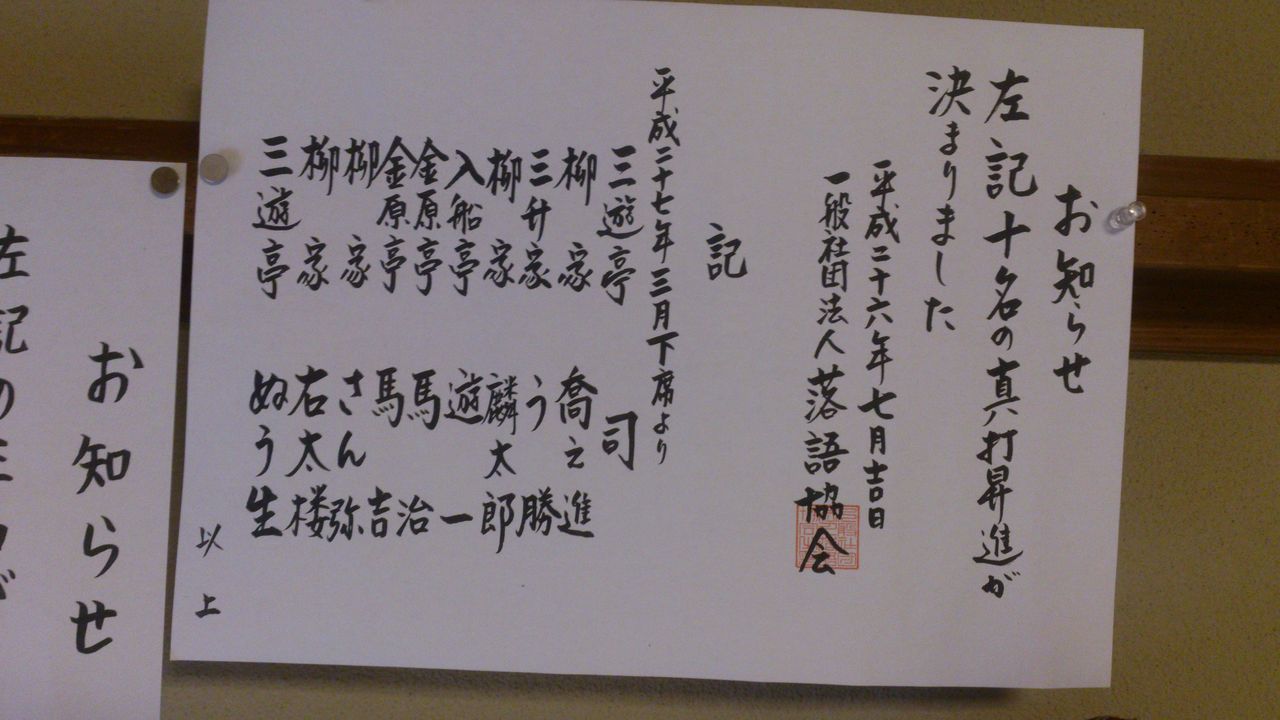 お知らせ
左記十名の真打昇進が
決まりました
平成二十六年七月吉日
一般社団法人落語協会
記
平成二十七年三月下席より
三遊亭 司
柳家 喬之進
三升家 う勝
柳家 麟太郎
入船亭 遊一
金原亭 馬治
金原亭 馬吉
柳家 さん弥
柳家 右太楼
三遊亭 ぬう生
以上
お知らせ